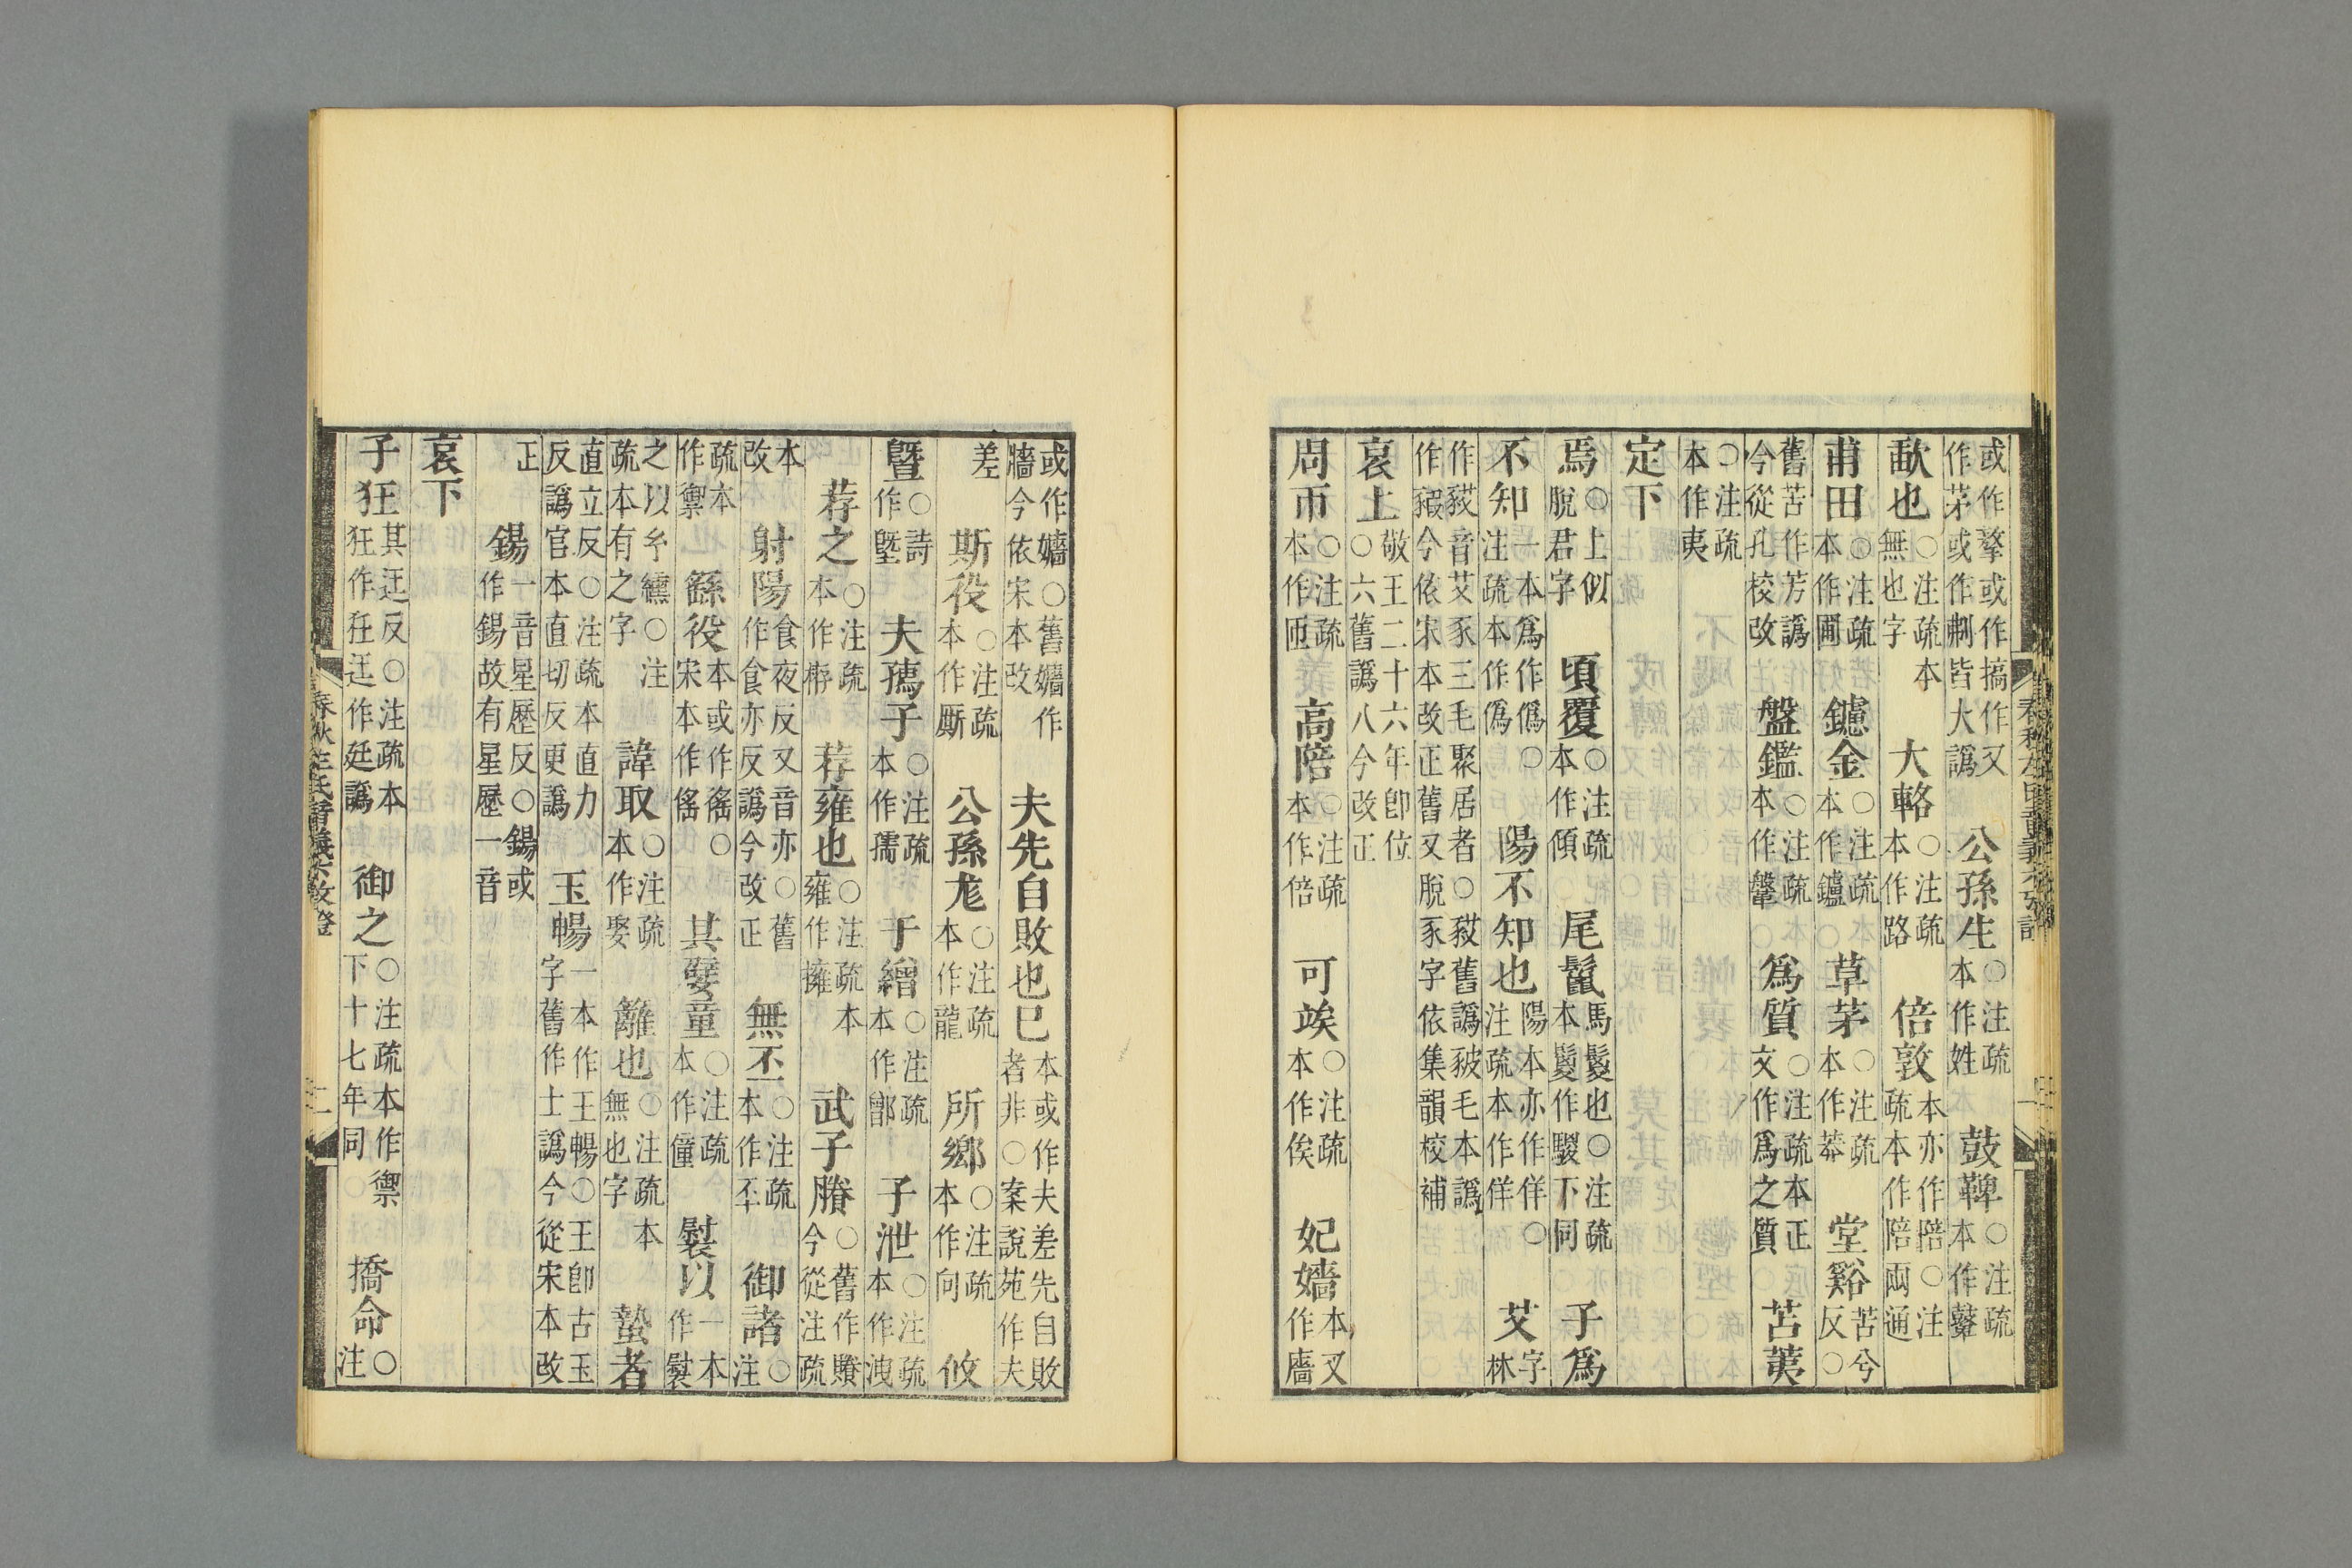 或作撉或作搞作又作茅或作刺皆大譌 公孫生○注疏本作姓 鼓鞞○注疏本作鼙
歃也○注疏本無也字 大輅○注疏本作路 倍敦本亦作陪○注疏本作陪兩通
甫田○注疏本作圃 鑢金○注疏本作鑪 草茅○注疏本作莽 堂谿苦兮反○
舊苦作芳譌今從孔校改 盤鑑○注疏本作鞶 爲質○注疏本正文作爲之質 苫荑
○注疏本作夷
定下
焉○上似脫君字 頃覆○注疏本作傾 尾鬛馬鬉也○注疏本鬉作騣下同 子爲
不知一本爲作僞○注疏本作僞 陽不知也陽本亦作佯○注疏本作佯 艾字林
作䝋音艾豕三毛聚居者○䝋舊譌豥毛本譌作豭今依宋本改正舊又脫豕字依集韻校補
哀上敬王二十六年卽位○六舊譌八今改正
周帀○注疏本作匝 高陪○注疏本作倍 可竢○注疏本作俟 妃嬙本又作廧
或作嬙○舊嬙作牆今依宋本改 夫先自敗也已本或作夫差先自敗者非○案說苑作夫
差 斯役○注疏本作厮 公孫尨○注疏本作龍 所鄉○注疏本作向 攸
曁○詩作墍 夫孺子○注疏本作孺 于繒○注疏本作鄫 子泄○注疏本作洩
荐之○注疏本作栫 荐雍也○注疏本雍作擁 武子賸○舊作賸今從注疏
本改 射陽食夜反又音亦○舊作食亦反譌今改正 無丕○注疏本作㔻 御諸○注
疏本作禦 繇役本或作徭○宋本作傜 其嬖童○注疏本作僮 褽以一本作㷉
之以糸纁○注疏本有之字 諱取○注疏本作娶 籬也○注疏本無也字 蟄者
直立反○注疏本直力反譌官本直切反更譌 玉暢一本作王暢○王卽古玉字舊作士譌今從宋本改
正 鍚一音星歷反○鍚或作錫故有星歷一音
哀下
子狂其迋反○注疏本狂作狅迋作廷譌 御之○注疏本作禦下十七年同 撟命○注
春秋左氏音義下攷證